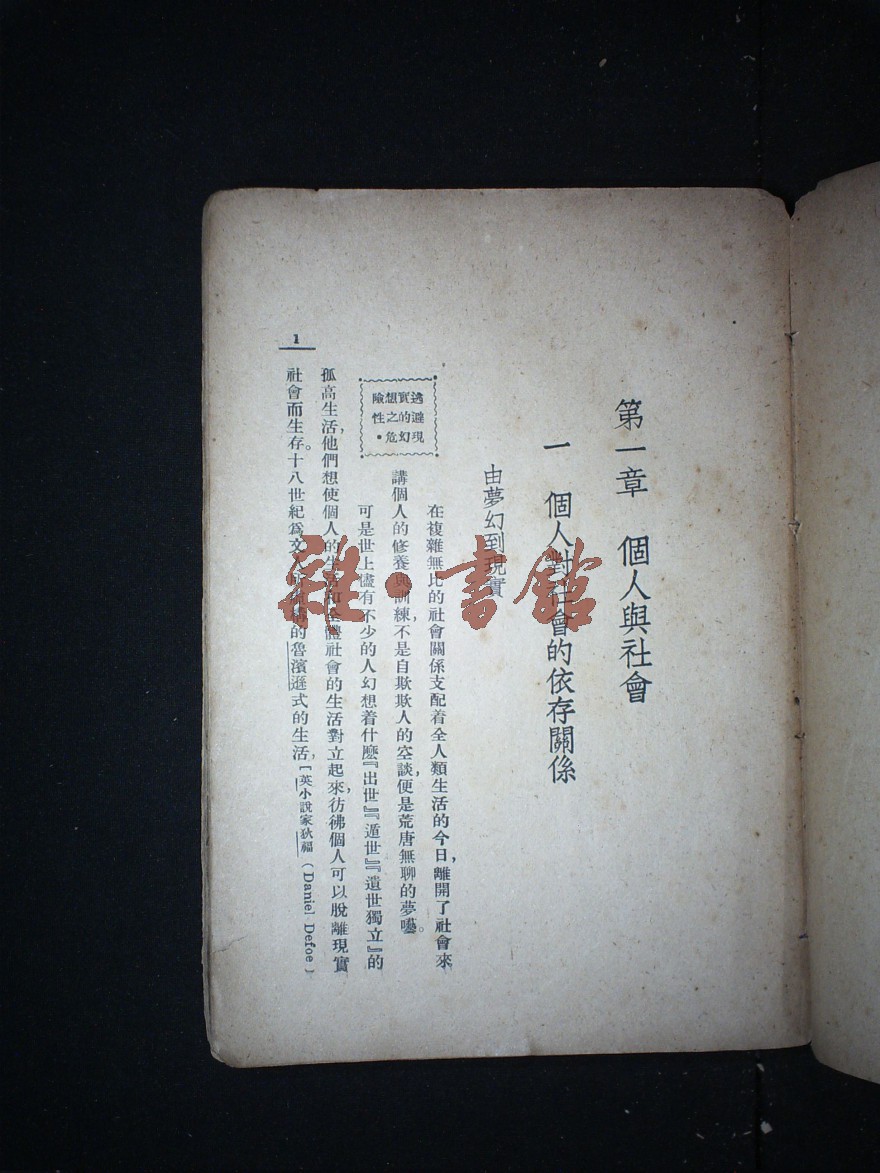 第一章　個人與社會
一　個人對社會的依存關係
由夢幻到現實
在複雜無比的社會關係支配着全人類生活的今日，離開了社會來
講個人的修養與訓練，不是自欺欺人的空談，便是荒唐無聊的夢囈。
逃避現
實的幻
想之危
險性。
可是世上儘有不少的人幻想着什麽『出世』『遁世』『遺世獨立』的
孤高生活，他們想使個人的生活和全體社會的生活對立起來，彷彿個人可以脫離現實
社會而生存。十八世紀爲文人所的魯濱遜式的生活，〔英小說家狄福（Daniel Defoe）
1
雜·書館